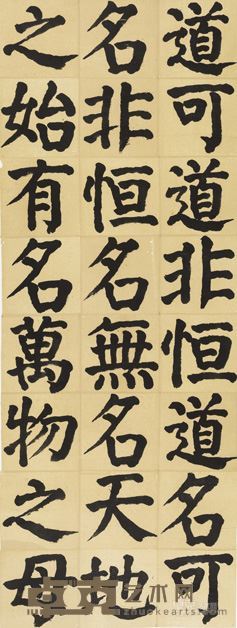 道可道非恒道名可
名非恒名無名天地
之始有名萬物之母
艺术网
zhuokearts.com